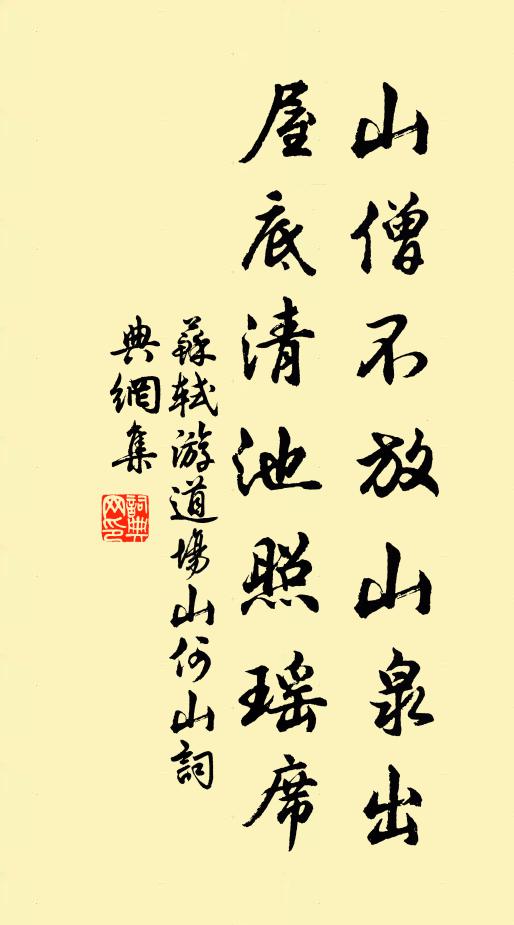 山僧不放山泉出
屋底清池照瑤席
蘇軾游道場山何山詞
典網集
詞典網印